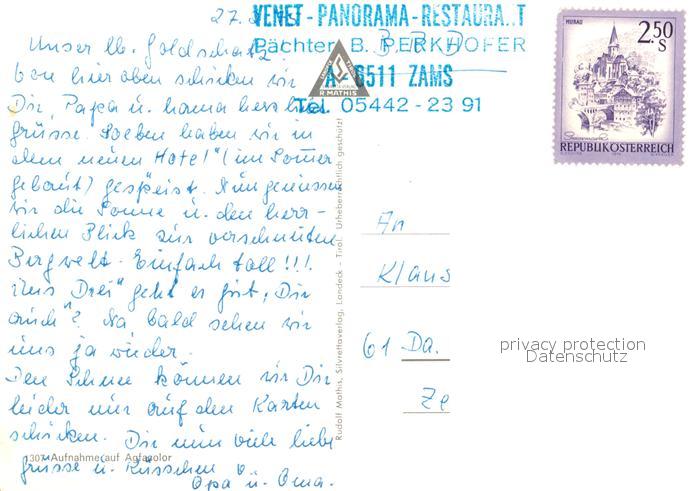 27.
VENET-PANORAMA-RESTAURA..T
Pächter B. PERKHOFER
A 6511 ZAMS
Tel. 05442-23 91
R. MATHIS
MURAU
2.50
S
REPUBLIK ÖSTERREICH
Unser lb. Goldschatz.
Von hier oben schicken wir
Dir, Papa u. Mama herzliche
Grüsse. Soeben haben wir in
dem neuen Hotel" (im Sommer
gebaut) gespeist. Nun geniessen
wir die Sonne u. den herr-
lichen Blick zur verschneiten
Bergwelt. Einfach toll!!!
Uns Drei" geht es gut, Dir
auch"? Na, bald sehen wir
uns ja wieder.
Den Schnee können wir Dir
leider nur auf den Karten
schicken. Dir nun viele liebe
Grüsse u. Küsschen
Opa u. Oma.
An
Klaus
61 Da.
Ze
privacy protection
Datenschutz
Rudolf Mathis, Silvrettaverlag, Landeck - Tirol. Urheberrechtlich geschützt!
1307 Aufnahme auf Agfacolor